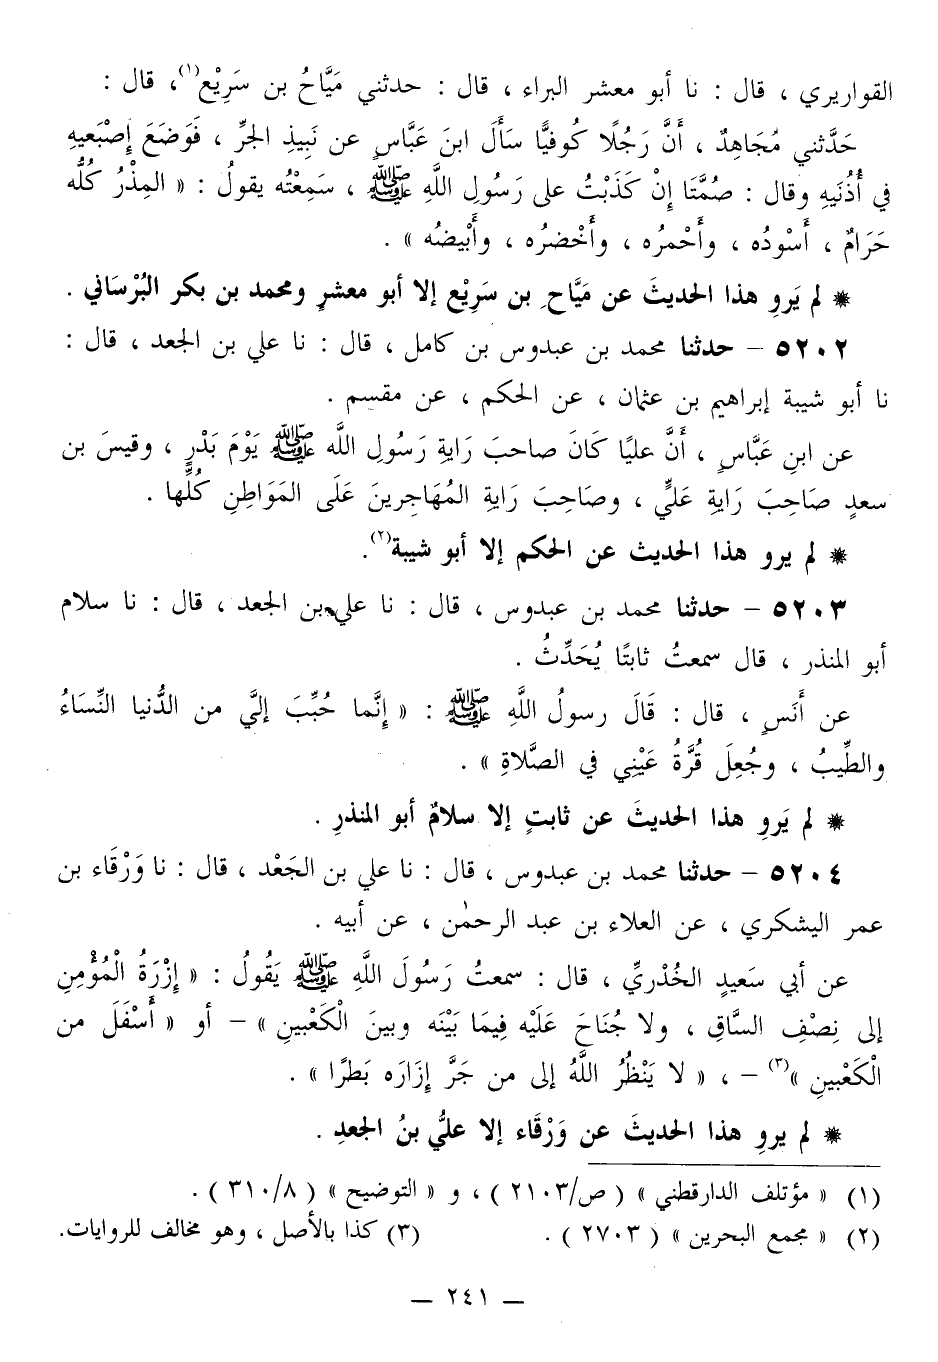 القواريري ، قال : نا أبو معشر البراء ، قال : حدثني مَيَّاحُ بن سَرِيْع(١)، قال :
حَدَّثني مُجَاهِدٌ ، أَنَّ رَجُلًا كُوفيًّا سَأَلَ ابنَ عَبَّاسٍ عن نَبِيذِ الجَرِّ ، فَوَضَعَ إِصْبَعيهِ
في أُذُنَيهِ وقال : صُمَّتَا إِنْ كَذَبْتُ على رَسُولِ اللَّهِ ﷺ ، سَمِعْتُه يقولُ : « المِذْرُ كُلُّه
حَرَامٌ ، أَسْوُده ، وأَحْمرُه ، وأَخْضرُه ، وأَبْيضُه » .
* لم يَروِ هذا الحديثَ عن مَيَّاحِ بن سَرِيْع إلا أبو معشرٍ ومحمد بن بكر البُرْسَاني .
٥٢٠٢ – حدثنا محمد بن عبدوس بن كامل ، قال : نا علي بن الجعد ، قال :
نا أبو شيبة إبراهيم بن عثمان ، عن الحكم ، عن مقسم .
عن ابنِ عَبَّاسٍ ، أَنَّ عليًا كَانَ صاحبَ رَايةِ رَسُولِ اللَّه ﷺ يَوْمَ بَدْرٍ ، وقيسَ بن
سعدٍ صَاحِبَ رَايةِ عَليٍّ ، وصَاحِبَ رَايةِ المُهَاجرينَ عَلَى المَوَاطِنِ كُلِّها .
* لم يرو هذا الحديث عن الحكم إلا أبو شيبة(٢).
٥٢٠٣ – حدثنا محمد بن عبدوس ، قال : نا علي بن الجعد ، قال : نا سلام
أبو المنذر ، قال سمعتُ ثابتًا يُحَدِّثُ .
عن أَنَسٍ ، قال : قَالَ رسولُ اللَّهِ ﷺ : « إِنَّما حُبِّبَ إليَّ من الدُّنيا النِّسَاءُ
والطِّيبُ ، وجُعِلَ قُرَّةُ عَيْنِي في الصَّلاةِ » .
* لم يَروِ هذا الحديثَ عن ثابتٍ إلا سلامٌ أبو المنذرِ .
٥٢٠٤ – حدثنا محمد بن عبدوس ، قال : نا علي بن الجَعْد ، قال : نا وَرْقَاء بن
عمر اليشكري ، عن العلاء بن عبد الرحمٰن ، عن أبيه .
عن أبي سَعيدٍ الخُدْريِّ ، قال : سمعتُ رَسُولَ اللَّهِ ﷺ يَقُولُ : « إِزْرَةُ الْمُؤْمِنِ
إلى نِصْفِ السَّاقِ ، ولا جُنَاحَ عَلَيْه فِيمَا بَيْنَه وبينَ الْكَعْبينِ » – أو « أَسْفَلَ من
الْكَعْبينِ »(٣) – ، « لا يَنْظُرُ اللَّهُ إلى من جَرَّ إِزَارَه بَطَرًا » .
* لم يروِ هذا الحديثَ عن وَرْقَاء إلا عليُّ بنُ الجعدِ .
(١) « مؤتلف الدارقطني » ( ص/٢١٠٣ ) ، و « التوضيح » ( ٣١٠/٨ ) .
(٢) « مجمع البحرين » ( ٢٧٠٣ ) . (٣) كذا بالأصل ، وهو مخالف للروايات.
— ٢٤١ —